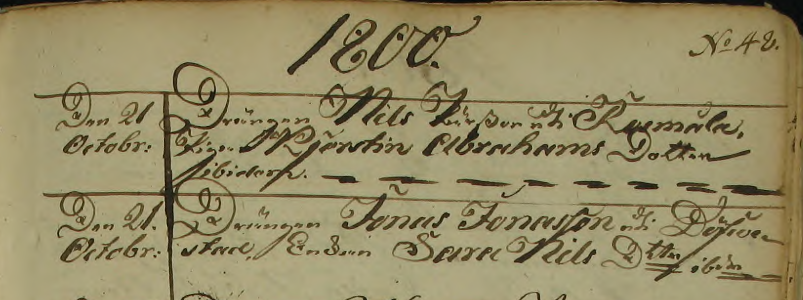 1800.
No 48.
Den 21 Drängen Nils Persson uti Rosmåla,
Octobr: Pigan Kjerstin Abrahams Dotter
ibidem.
Den 21. Drängen Jonas Jonasson uti
Octobr: Enkan Sara Nils Dttr ibm